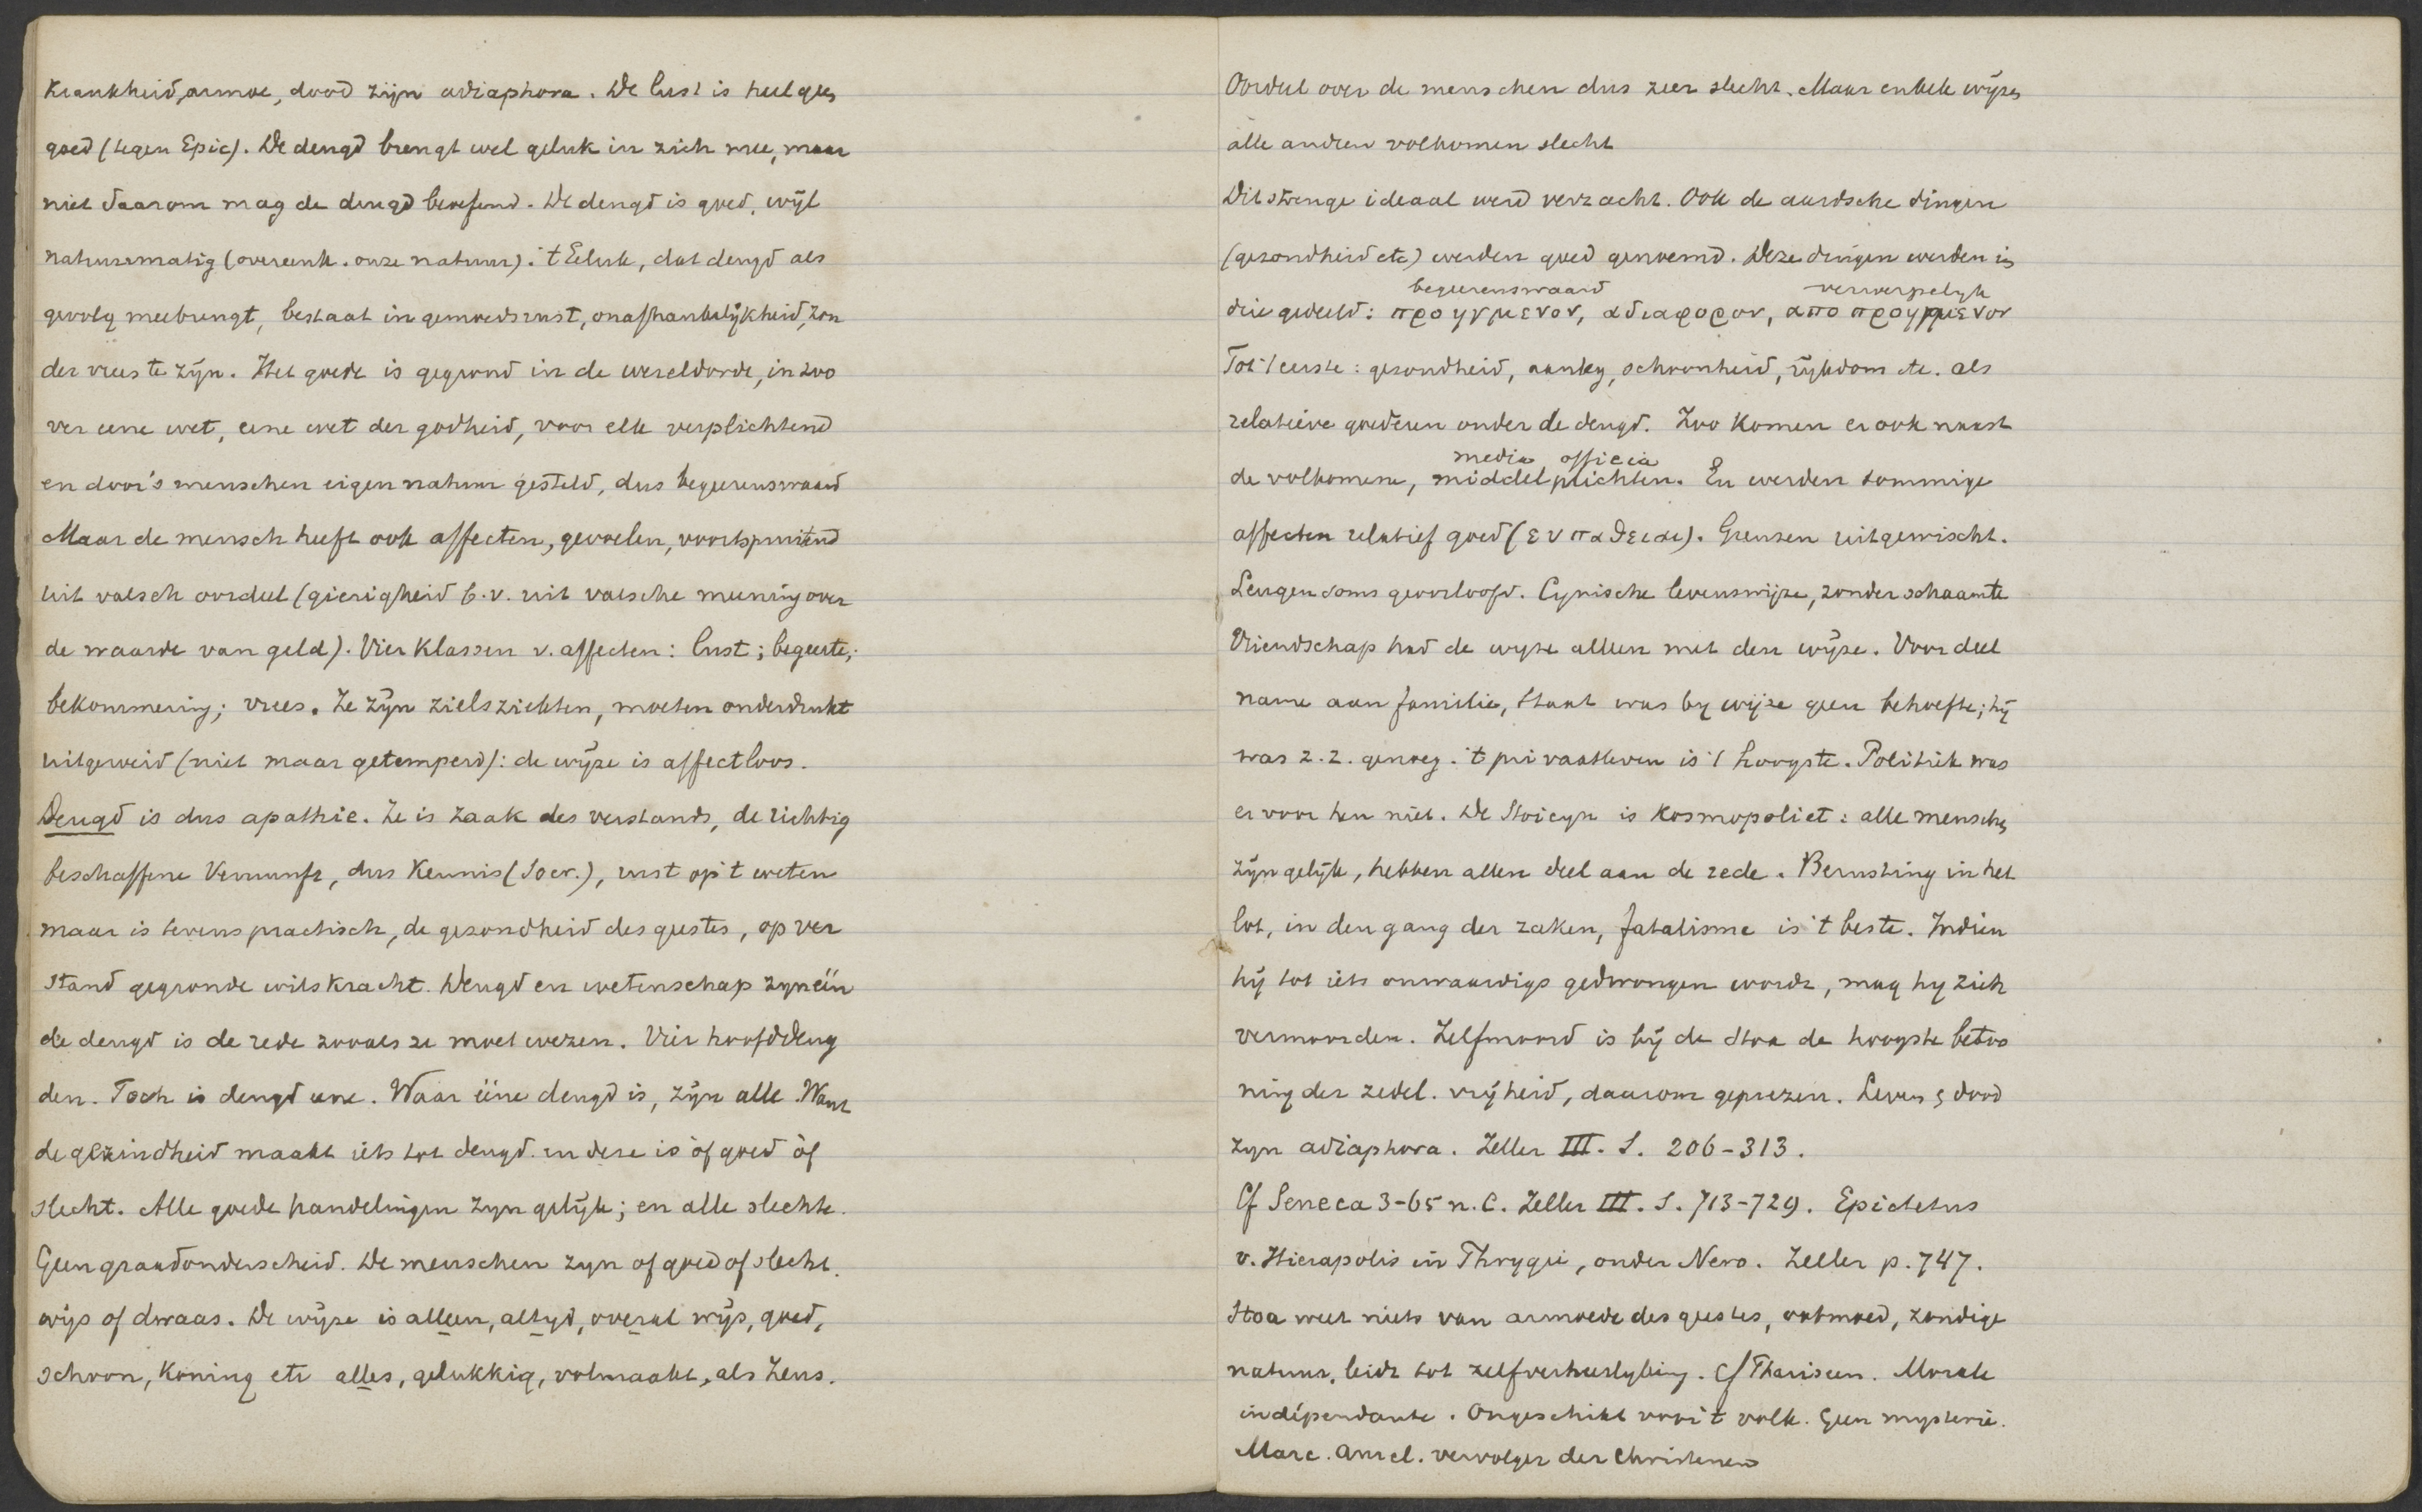 Krankheid, armoe, dood zijn adiaphora. De lust is heel geen
goed (tegen Epic). De deugd brengt wel geluk in zich mee, maar
niet daarom mag de deugd beoefend. De deugd is goed, wijl
natuurmatig (overeenk. onze natuur). 't Geluk, dat deugd als
gevolg meebrengt, bestaat in gemoedsrust, onafhankelijkheid, zon
der vrees te zijn. Het goede is gegrond in de wereldorde, in zoo
ver eene wet, eene wet der godheid, voor elk verplichtend
en door 's menschen eigen natuur gesteld, dus begeerenswaard
Maar de mensch heeft ook affecten, gevoelen, voortspruitend
uit valsch oordeel (gierigheid b.v. uit valsche meening over
de waarde van geld). Vier klassen v. affecten: lust; begeerte;
bekommering; vrees. Ze zijn zielsziekten, moeten onderdrukt
uitgeroeid (niet maar getemperd): de wijze is affectloos.
Deugd is dus apathie. Ze is zaak des verstands, de richtig
beschaffene Vernunft, dus Kennis (Socr.), rust op 't weten
maar is levenspractisch, de gezondheid des geestes, op ver
stand gegronde wilskracht. Deugd en wetenschap zyn één
de deugd is de rede zooals ze moet wezen. Vier hoofddeug
den. Toch is deugd eene. Waar ééne deugd is, zijn alle. Want
de gezindheid maakt iets tot deugd. en deze is òf goed òf
slecht. Alle goede handelingen zyn gelijk; en alle slechte.
Geen graadonderscheid. De menschen zyn of goed of slecht.
wijs of dwaas. De wijze is alleen, altyd, overal wijs, goed,
schoon, Koning etc alles, gelukkig, volmaakt, als Zeus.
Oordeel over de menschen dus zeer slecht. Maar enkele wijzen
alle andren volkomen slecht
Dit strenge ideaal werd verzacht. Ook de aardsche dingen
(gezondheid etc) werden goed genoemd. Deze dingen werden in
begeerenswaard verwerpelyk
drie gedeeld: προηγμενον, αδιαφορον, αποπροηγμενον
Tot 't eerste: gezondheid, aanleg, schoonheid, rijkdom etc. als
relatieve goederen onder de deugd. Zoo komen er ook naast
media officia
de volkomene, middelplichten. En werden sommige
affecten relatief goed (ευπαθειαι). Grenzen uitgewischt.
Leugen soms geoorloofd. Cynische levenswijze, zonder schaamte
Vriendschap had de wyze alleen met den wijze. Voor deel
name aan familie, staat was by wijze geen behoefte; hij
was z.z. genoeg. 't privaatleven is 't hoogste. Politiek was
er voor hen niet. De Stoicyn is kosmopoliet: alle menschen
zijn gelijk, hebben allen deel aan de rede. Berusting in het
lot, in den gang der zaken, fatalisme is 't beste. Indien
hij tot iets onwaardigs gedwongen wordt, mag hy zich
vermoorden. Zelfmoord is bij de Stoa de hoogste betoo
ning der zedel. vrijheid, daarom geprezen. Leven & dood
zyn adiaphora. Zeller III. S. 206-313.
Cf Seneca 3-65 n. C. Zeller III. S. 713-729. Epictetus
v. Hierapolis in Phrygie, onder Nero. Zeller p. 747.
Stoa weet niets van armoede des geestes, ootmoed, zondige
natuur, leidt tot zelfverheerlyking. Cf Phariseen. Morale
indépendante. Ongeschikt voor 't volk. Geen mysterie.
Marc. Aurel. vervolger der Christenen